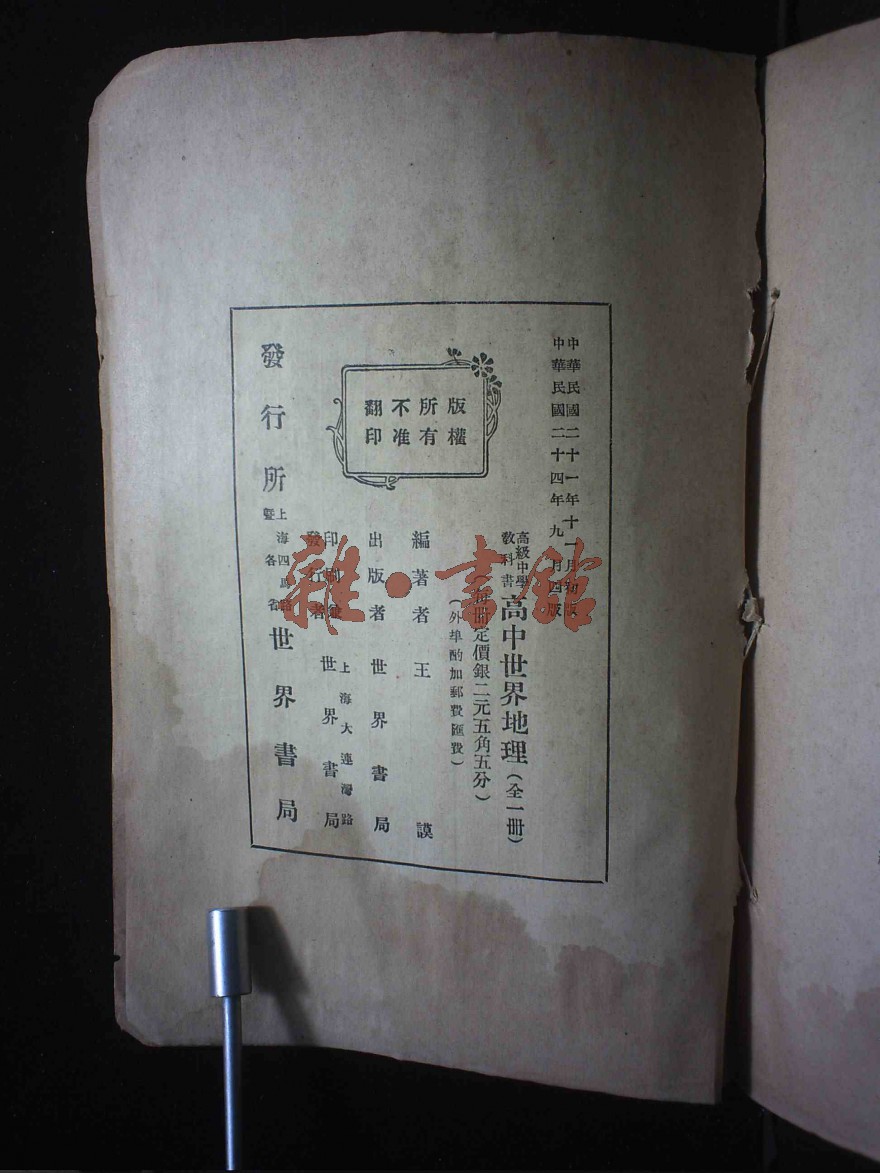 中華民國二十一年十一月初版
中華民國二十四年九月四版
高級中學
教科書
高中世界地理（全一冊）
（每冊定價銀二元五角五分）
（外埠酌加郵費匯費）
版權
所有
不准
翻印
編著者 王 謨
出版者 世界書局
印刷兼
發行者
上海大連灣路
世界書局
發行所
上海四馬路
暨各省
世界書局
雜·書館